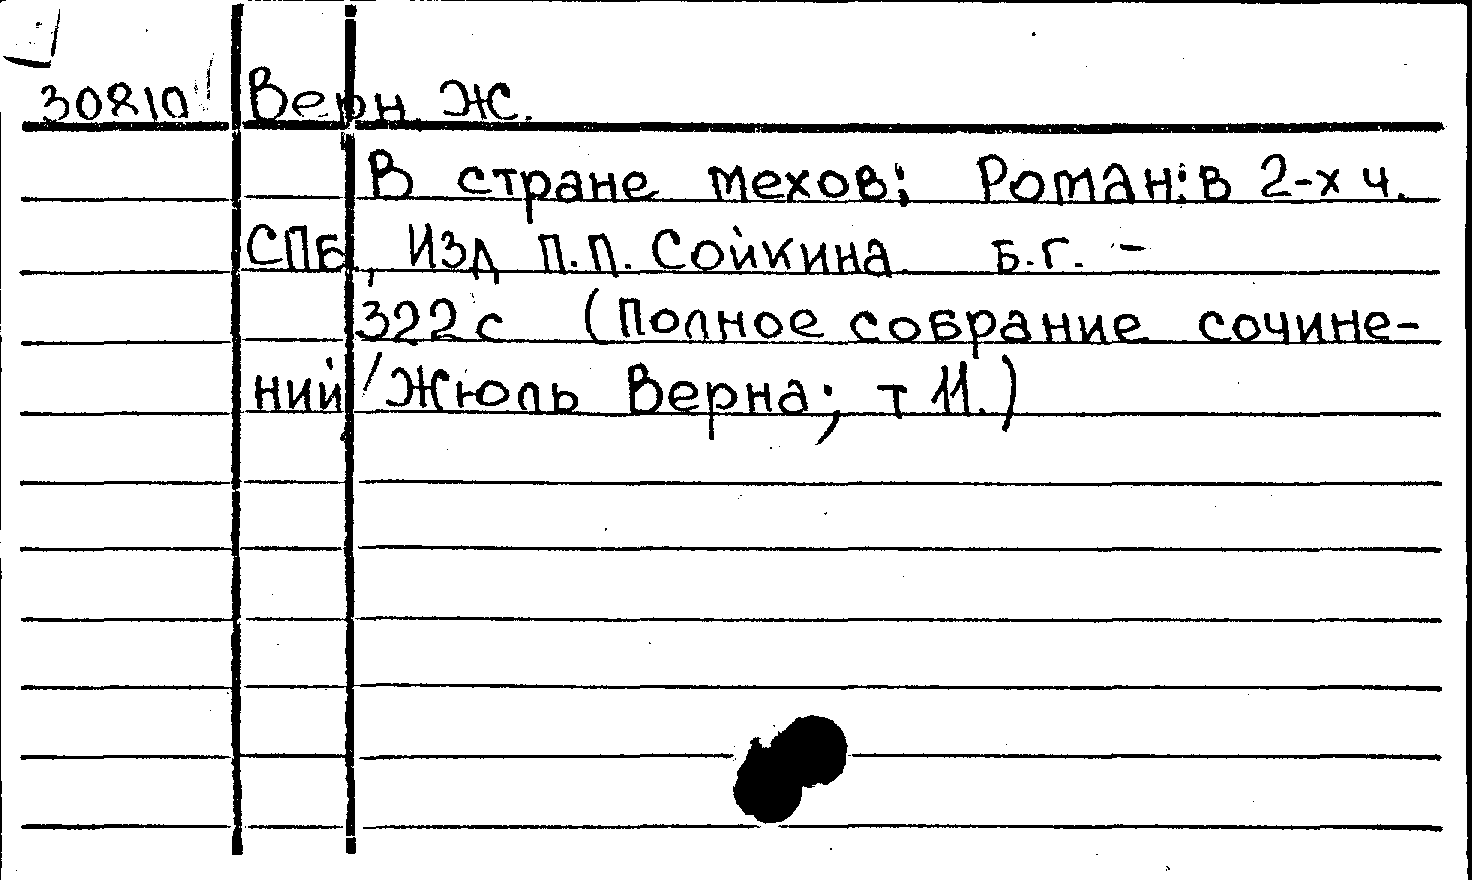 30810 Верн Ж.
В стране мехов; Роман: в 2-х ч.
СПБ., Изд П.П. Сойкина Б.Г. -
322 с (Полное собрание сочине-
ний / Жюль Верна; т 11.)